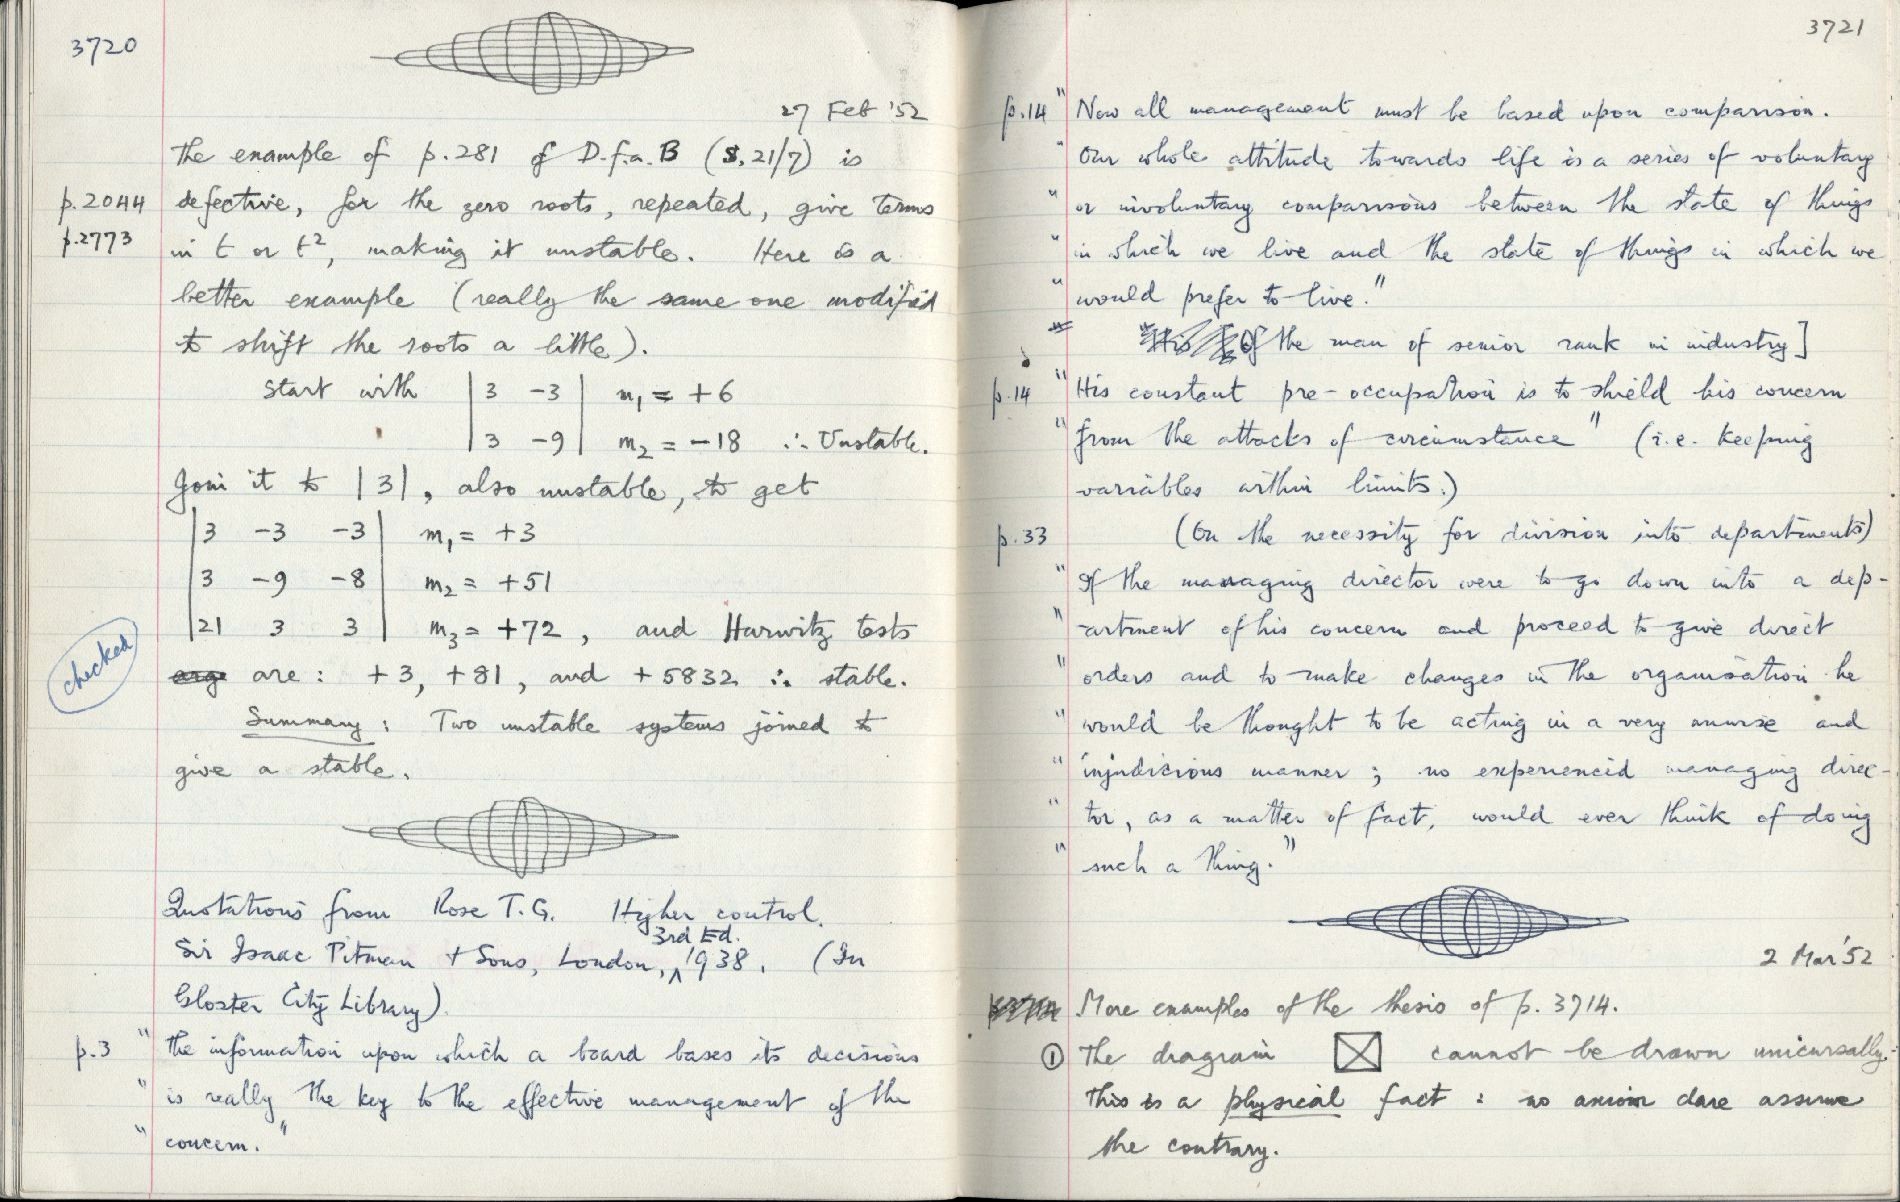 3720
27 Feb '52
The example of p.281 of D.f.a.B (S. 21/7) is
p.2044 defective, for the zero roots, repeated, give terms
p.2773 in t or t², making it unstable. Here is a
better example (really the same one modified
to shift the roots a little).
Start with | 3 -3 | m₁ = +6
| 3 -9 | m₂ = -18 ∴ Unstable.
Join it to |3|, also unstable, to get
| 3 -3 -3 | m₁ = +3
| 3 -9 -8 | m₂ = +51
| 21 3 3 | m₃ = +72, and Hurwitz tests
checked
are: +3, +81, and +5832 ∴ stable.
Summary: Two unstable systems joined to
give a stable.
Quotations from Rose T.G. Higher control.
3rd Ed.
Sir Isaac Pitman + Sons, London, 1938. (In
Gloster City Library)
p.3 " The information upon which a board bases its decisions
" is really the key to the effective management of the
" concern."
3721
p.14 " Now all management must be based upon comparison.
" Our whole attitude towards life is a series of voluntary
" or involuntary comparisons between the state of things
" in which we live and the state of things in which we
" would prefer to live."
Of the man of senior rank in industry]
p.14 " His constant pre-occupation is to shield his concern
" from the attacks of circumstance" (i.e. keeping
variables within limits.)
p.33 (On the necessity for division into departments)
" If the managing director were to go down into a dep-
" artment of his concern and proceed to give direct
" orders and to make changes in the organisation he
" would be thought to be acting in a very unwise and
" injudicious manner; no experienced managing direc-
" tor, as a matter of fact, would ever think of doing
" such a thing."
2 Mar '52
More examples of the thesis of p. 3714.
① The diagram cannot be drawn unicursally.
This is a physical fact: no axiom dare assume
the contrary.